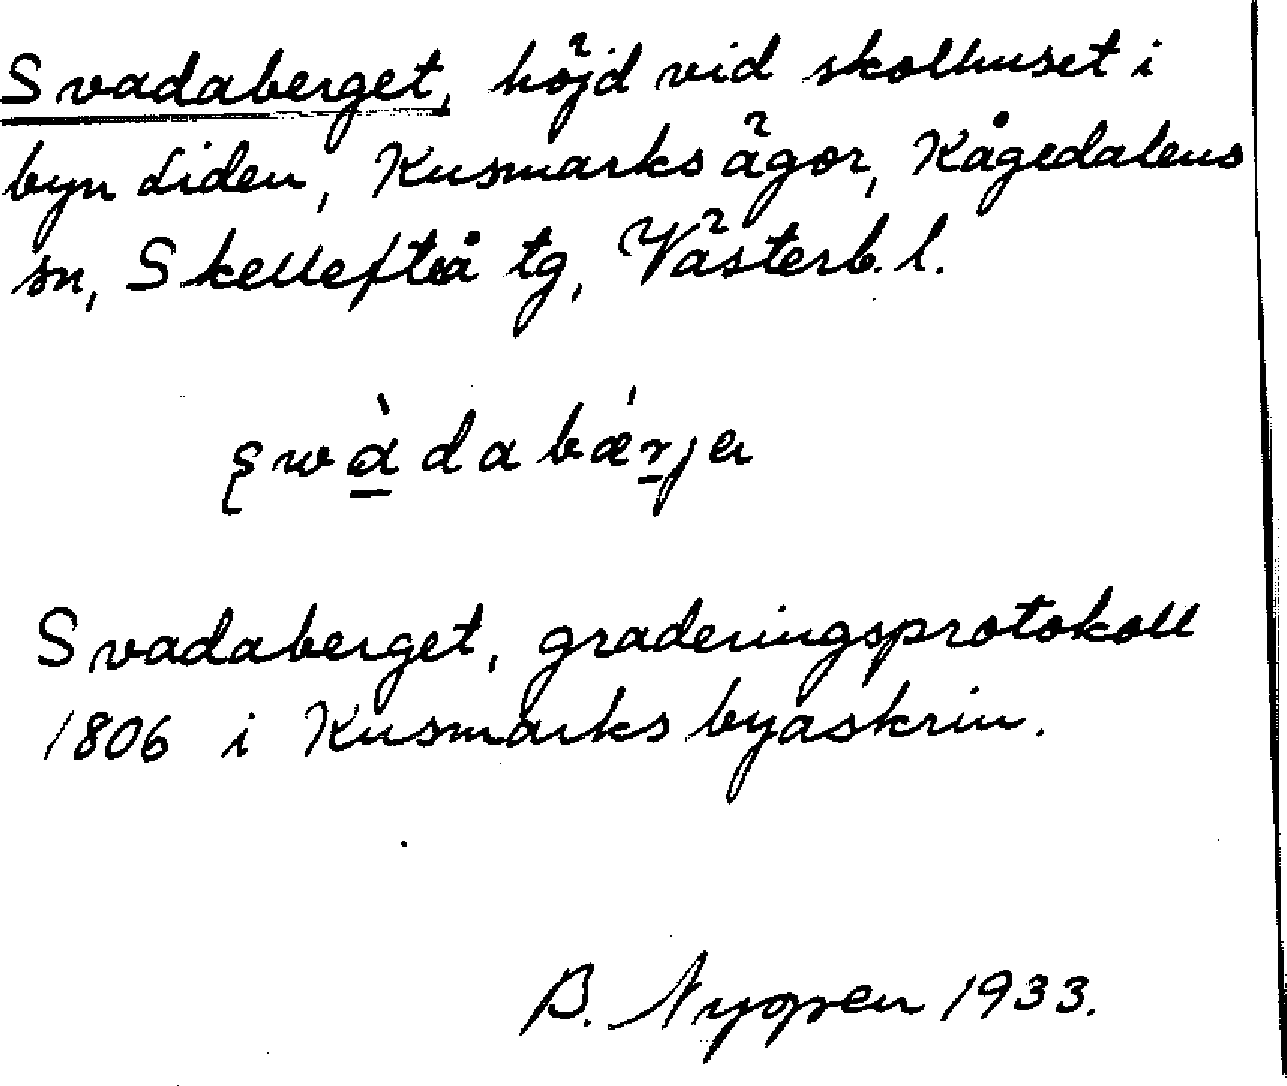 Svadaberget, höjd vid skolhuset i
byn Liden, Kusmarks ägor, Kågedalens
sn, Skellefteå tg, Västerb. l.
swàdabǽrja
Svadaberget, graderingsprotokoll
1806 i Kusmarks byaskrin.
B. Nygren 1933.